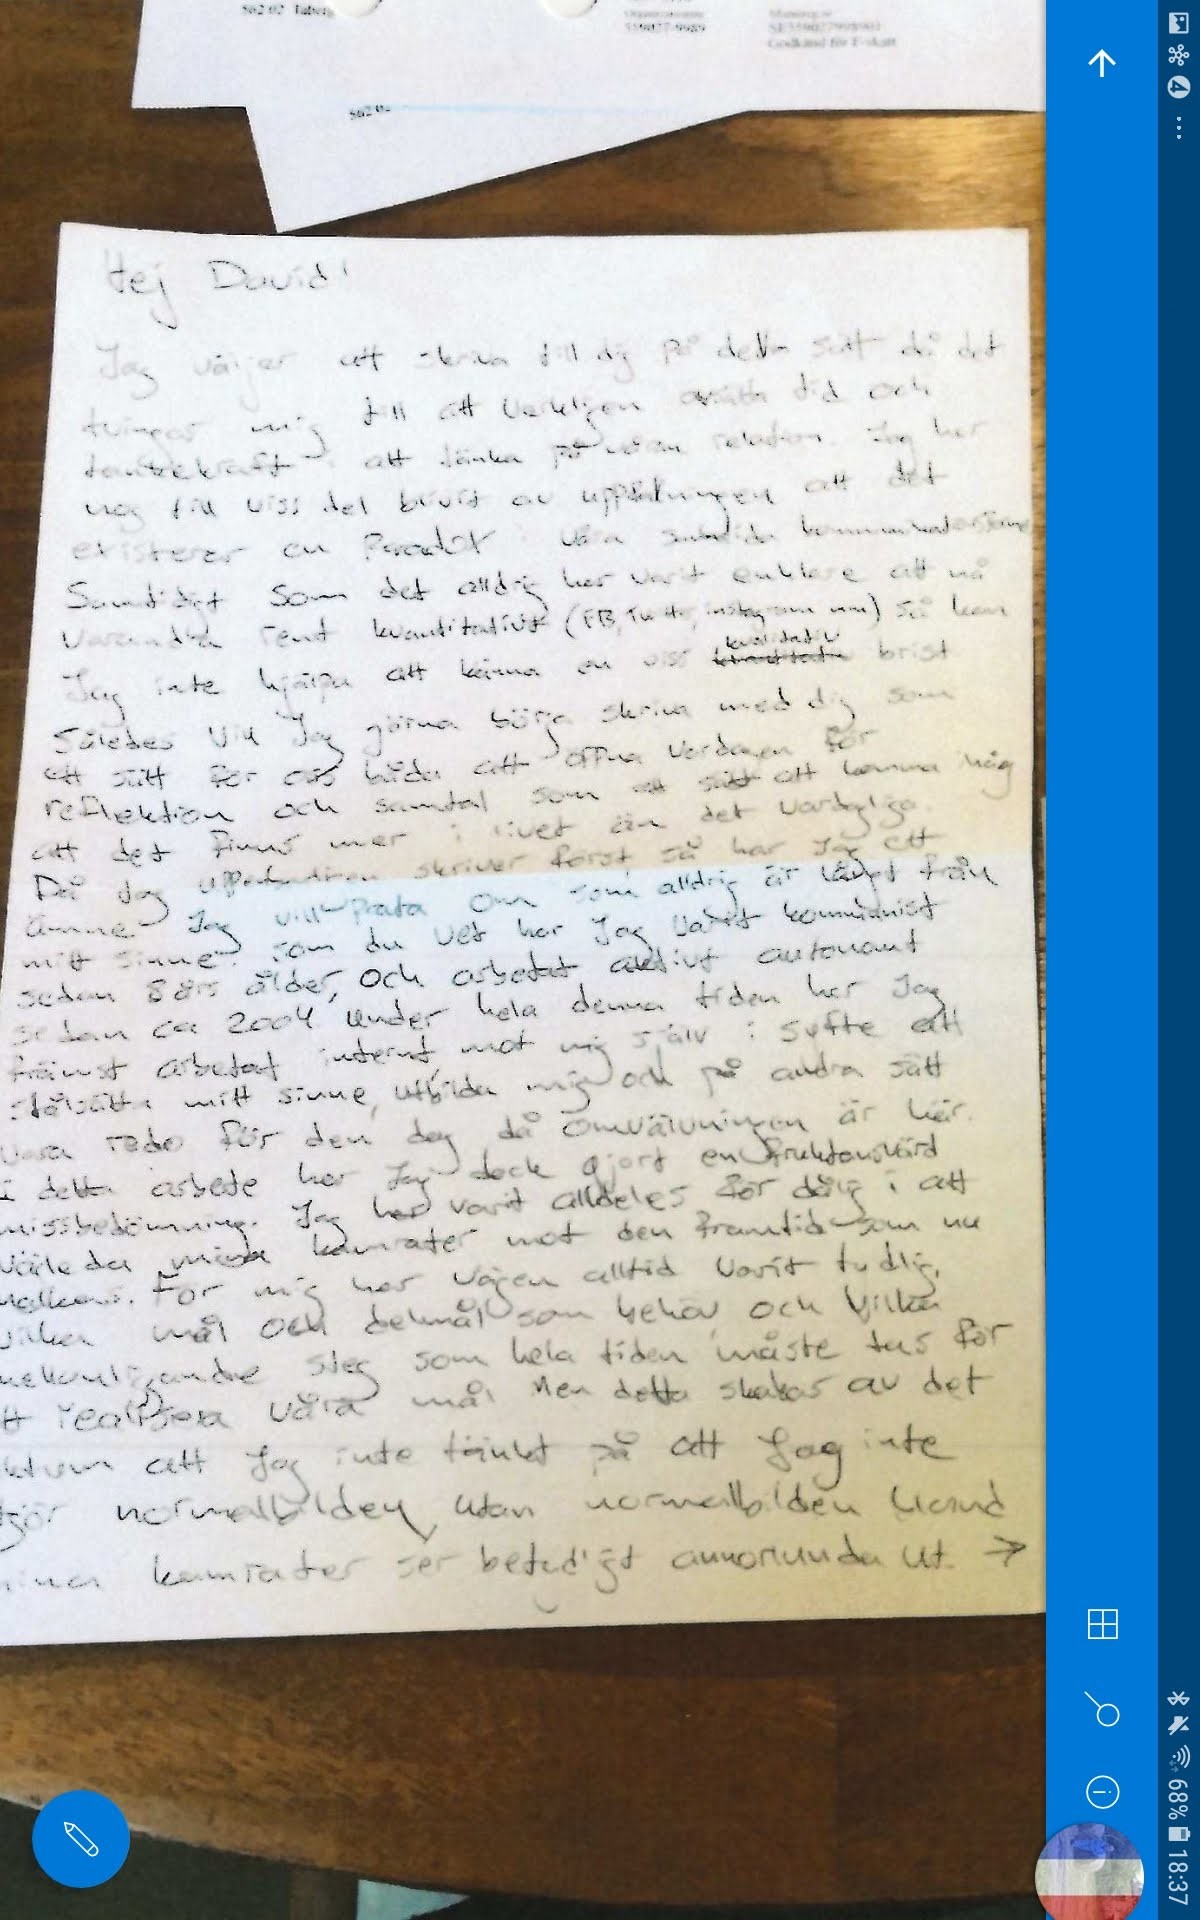 562 02 Taberg
519027-9989
Godkänd för F-skatt
562 02
Hej David!
Jag väljer att skriva till dig på detta sätt då det
tvingar mig till att verkligen avsätta tid och
tankekraft i att tänka på våran relation. Jag har
nog till viss del blivit av uppfattningen att det
existerar en Paradox i våra
Samtidigt som det alldrig har varit enklare att nå
varandra rent kvantitativt (FB, Twitter, instagram mm) så kan
kvalitativ
Jag inte hjälpa att känna en viss brist
Således vill Jag gärna börja skriva med dig som
ett sätt för oss båda att öppna vardagen för
reflektion och samtal som ett sätt att komma ihåg
att det finns mer i livet än det vardagliga.
Då Jag skriver först så har Jag ett
ämne Jag vill prata om som alldrig är långt från
mitt sinne. Som du vet har Jag varit kommunist
sedan 8 års ålder, och arbetat aktivt autonomt
sedan ca 2004 under hela denna tiden har Jag
främst arbetat internt, mot mig själv i syfte att
stålsätta mitt sinne, utbilda mig och på andra sätt
vara redo för den dag då omvälvningen är här.
i detta arbete har Jag dock gjort en fruktansvärd
missbedömning. Jag har varit alldeles för dålig i att
mina kamrater mot den framtid som nu
nalkas. För mig har vägen alltid varit tydlig,
vilka mål och delmål som behöv, och vilka
steg som hela tiden måste tas för
att realisera våra mål Men detta skakas av det
faktum att Jag inte tänkt på att Jag inte
utgör normalbilden, utan normalbilden bland
mina kamrater ser betydligt annorlunda ut. →
68% 18:37